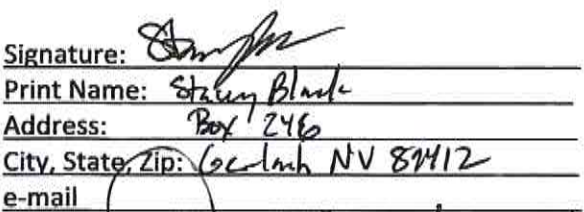 Signature:
Print Name: Stacey Black
Address: Box 246
City, State, Zip: Gerlach NV 89412
e-mail